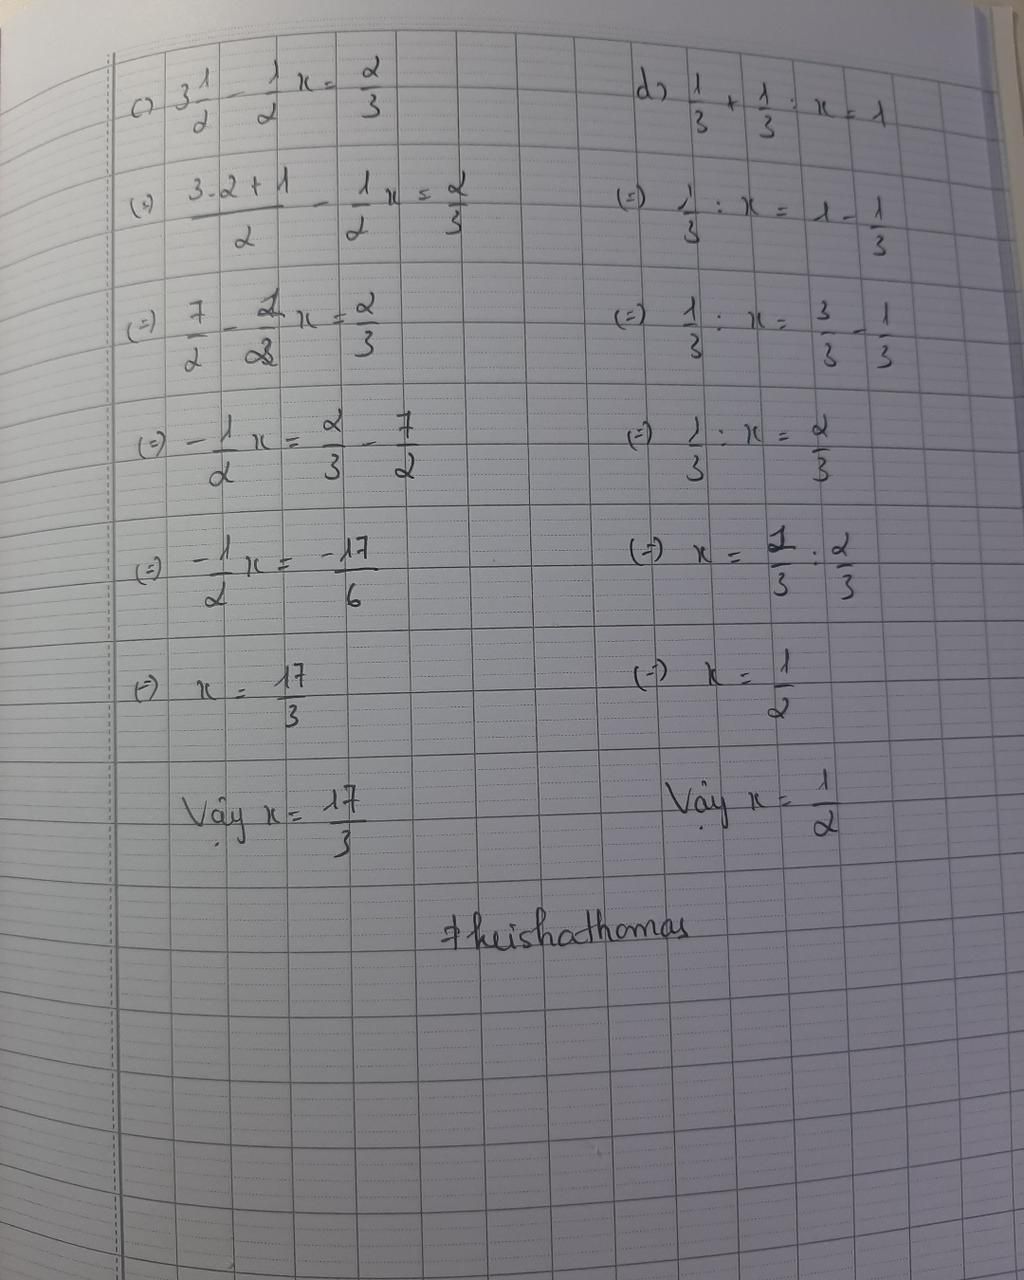 c) 3 1/2 - 1/2 x = 2/3
(=) (3.2+1)/2 - 1/2 x = 2/3
(=) 7/2 - 1/2 x = 2/3
(=) -1/2 x = 2/3 - 7/2
(=) -1/2 x = -17/6
(=) x = 17/3
Vậy x = 17/3
d) 1/3 + 1/3 : x = 1
(=) 1/3 : x = 1 - 1/3
(=) 1/3 : x = 3/3 - 1/3
(=) 1/3 : x = 2/3
(=) x = 1/3 : 2/3
(=) x = 1/2
Vậy x = 1/2